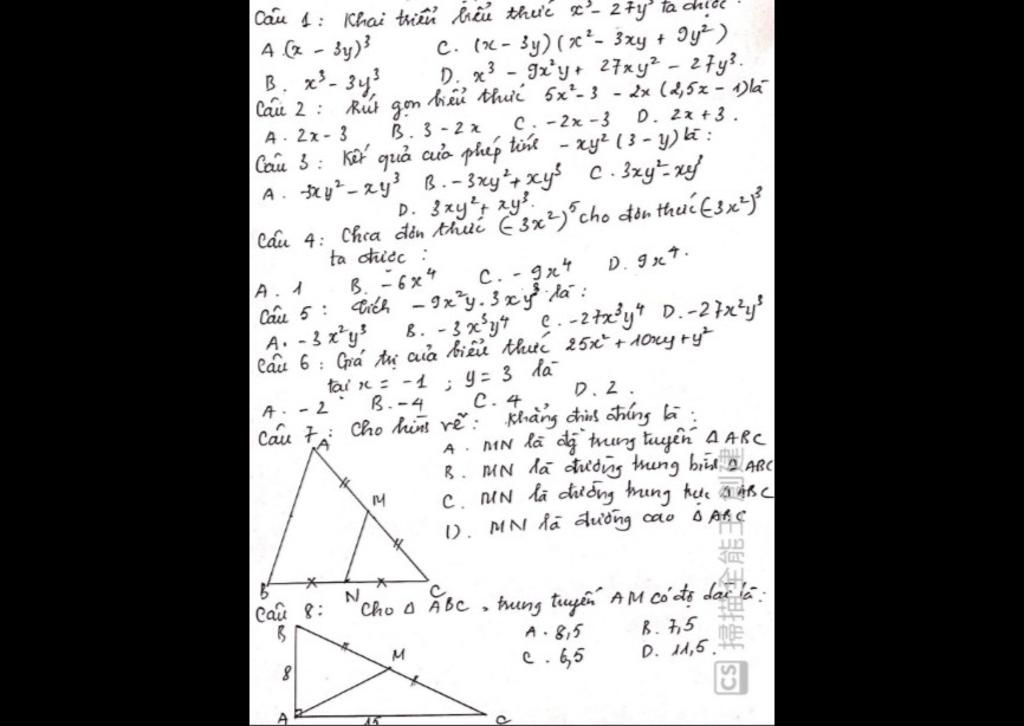 Câu 1: Khai triển biểu thức x³ - 27y³ ta được:
A. (x - 3y)³ C. (x - 3y)(x² - 3xy + 9y²)
B. x³ - 3y³ D. x³ - 9x²y + 27xy² - 27y³.
Câu 2: Rút gọn biểu thức 5x² - 3 - 2x(2,5x - 1) là
A. 2x - 3 B. 3 - 2x C. -2x - 3 D. 2x + 3.
Câu 3: Kết quả của phép tính -xy²(3 - y) là:
A. -3xy² - xy³ B. -3xy² + xy³ C. 3xy² - xy³
D. 3xy² + xy³.
Câu 4: Chia đơn thức (-3x²)⁵ cho đơn thức (-3x²)³
ta được:
A. 1 B. -6x⁴ C. -9x⁴ D. 9x⁴.
Câu 5: Tích -9x²y.3xy³ là:
A. -3x²y³ B. -3x³y⁴ C. -27x³y⁴ D. -27x²y³
Câu 6: Giá trị của biểu thức 25x² + 10xy + y²
tại x = -1; y = 3 là
A. -2 B. -4 C. 4 D. 2.
Câu 7: Cho hình vẽ: Khẳng định đúng là:
A. MN là đg trung tuyến Δ ABC
B. MN là đường trung bình Δ ABC
C. MN là đường trung trực Δ ABC
D. MN là đường cao Δ ABC
A
M
B N C
Câu 8: Cho Δ ABC, trung tuyến AM có độ dài là:
A. 8,5 B. 7,5
C. 6,5 D. 11,5.
B
M
8
A 15 C
CS 掃描全能王 創建